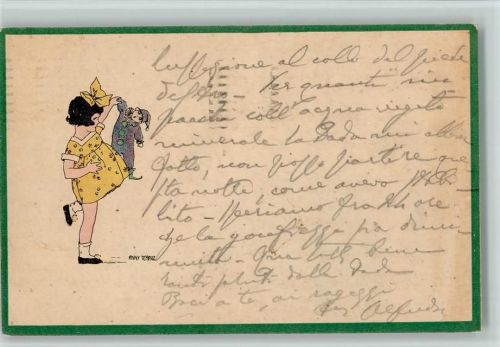 suffezione al collo del piede
destro - Per quanti im
pacchi coll'acqua vegeto
minerale la Dada mi abbia
fatto, non posso partire que
sta notte, come avevo stabi
lito - Speriamo fra 24 ore
che la gonfiezza sia dimi
nuita - Qui tutti bene
tanti saluti dalla Dada
Baci a te, ai ragazzi
Alfredo